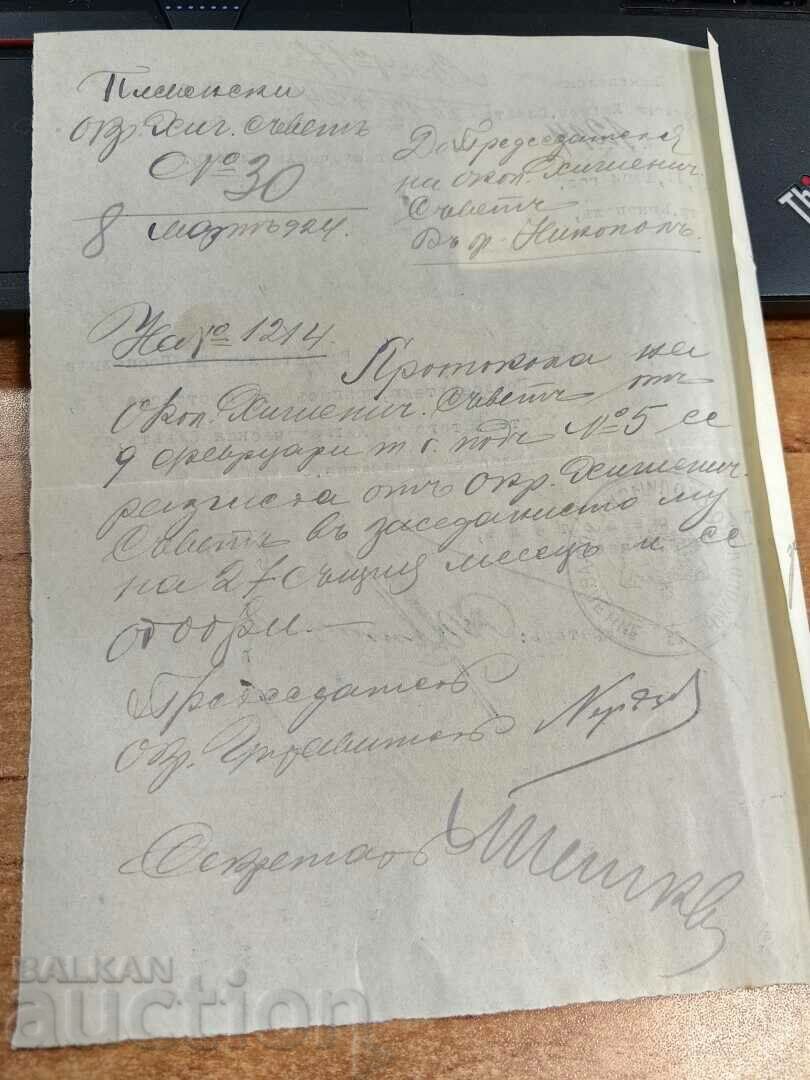 Плевенски
окр. Хиг. съветъ
№ 30
8 мартъ 924.
До Председателя
на окол. Хигиенич.
Съветъ
Въ гр. Никополъ.
На № 1214.
Протокола на
окол. Хигиенич. Съветъ отъ
9 февруари т. г. подъ № 5 се
разгледа отъ окр. Хигиенич.
Съветъ въ заседанието му
на 27 същия месецъ и се
одобри.—
Председателъ
Окр. Управителъ
Секретаръ
BALKAN
auction
Th